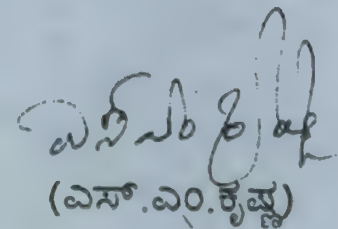 ಎಸ್ ಎಂ ಕೃಷ್ಣ
(ಎಸ್.ಎಂ.ಕೃಷ್ಣ)